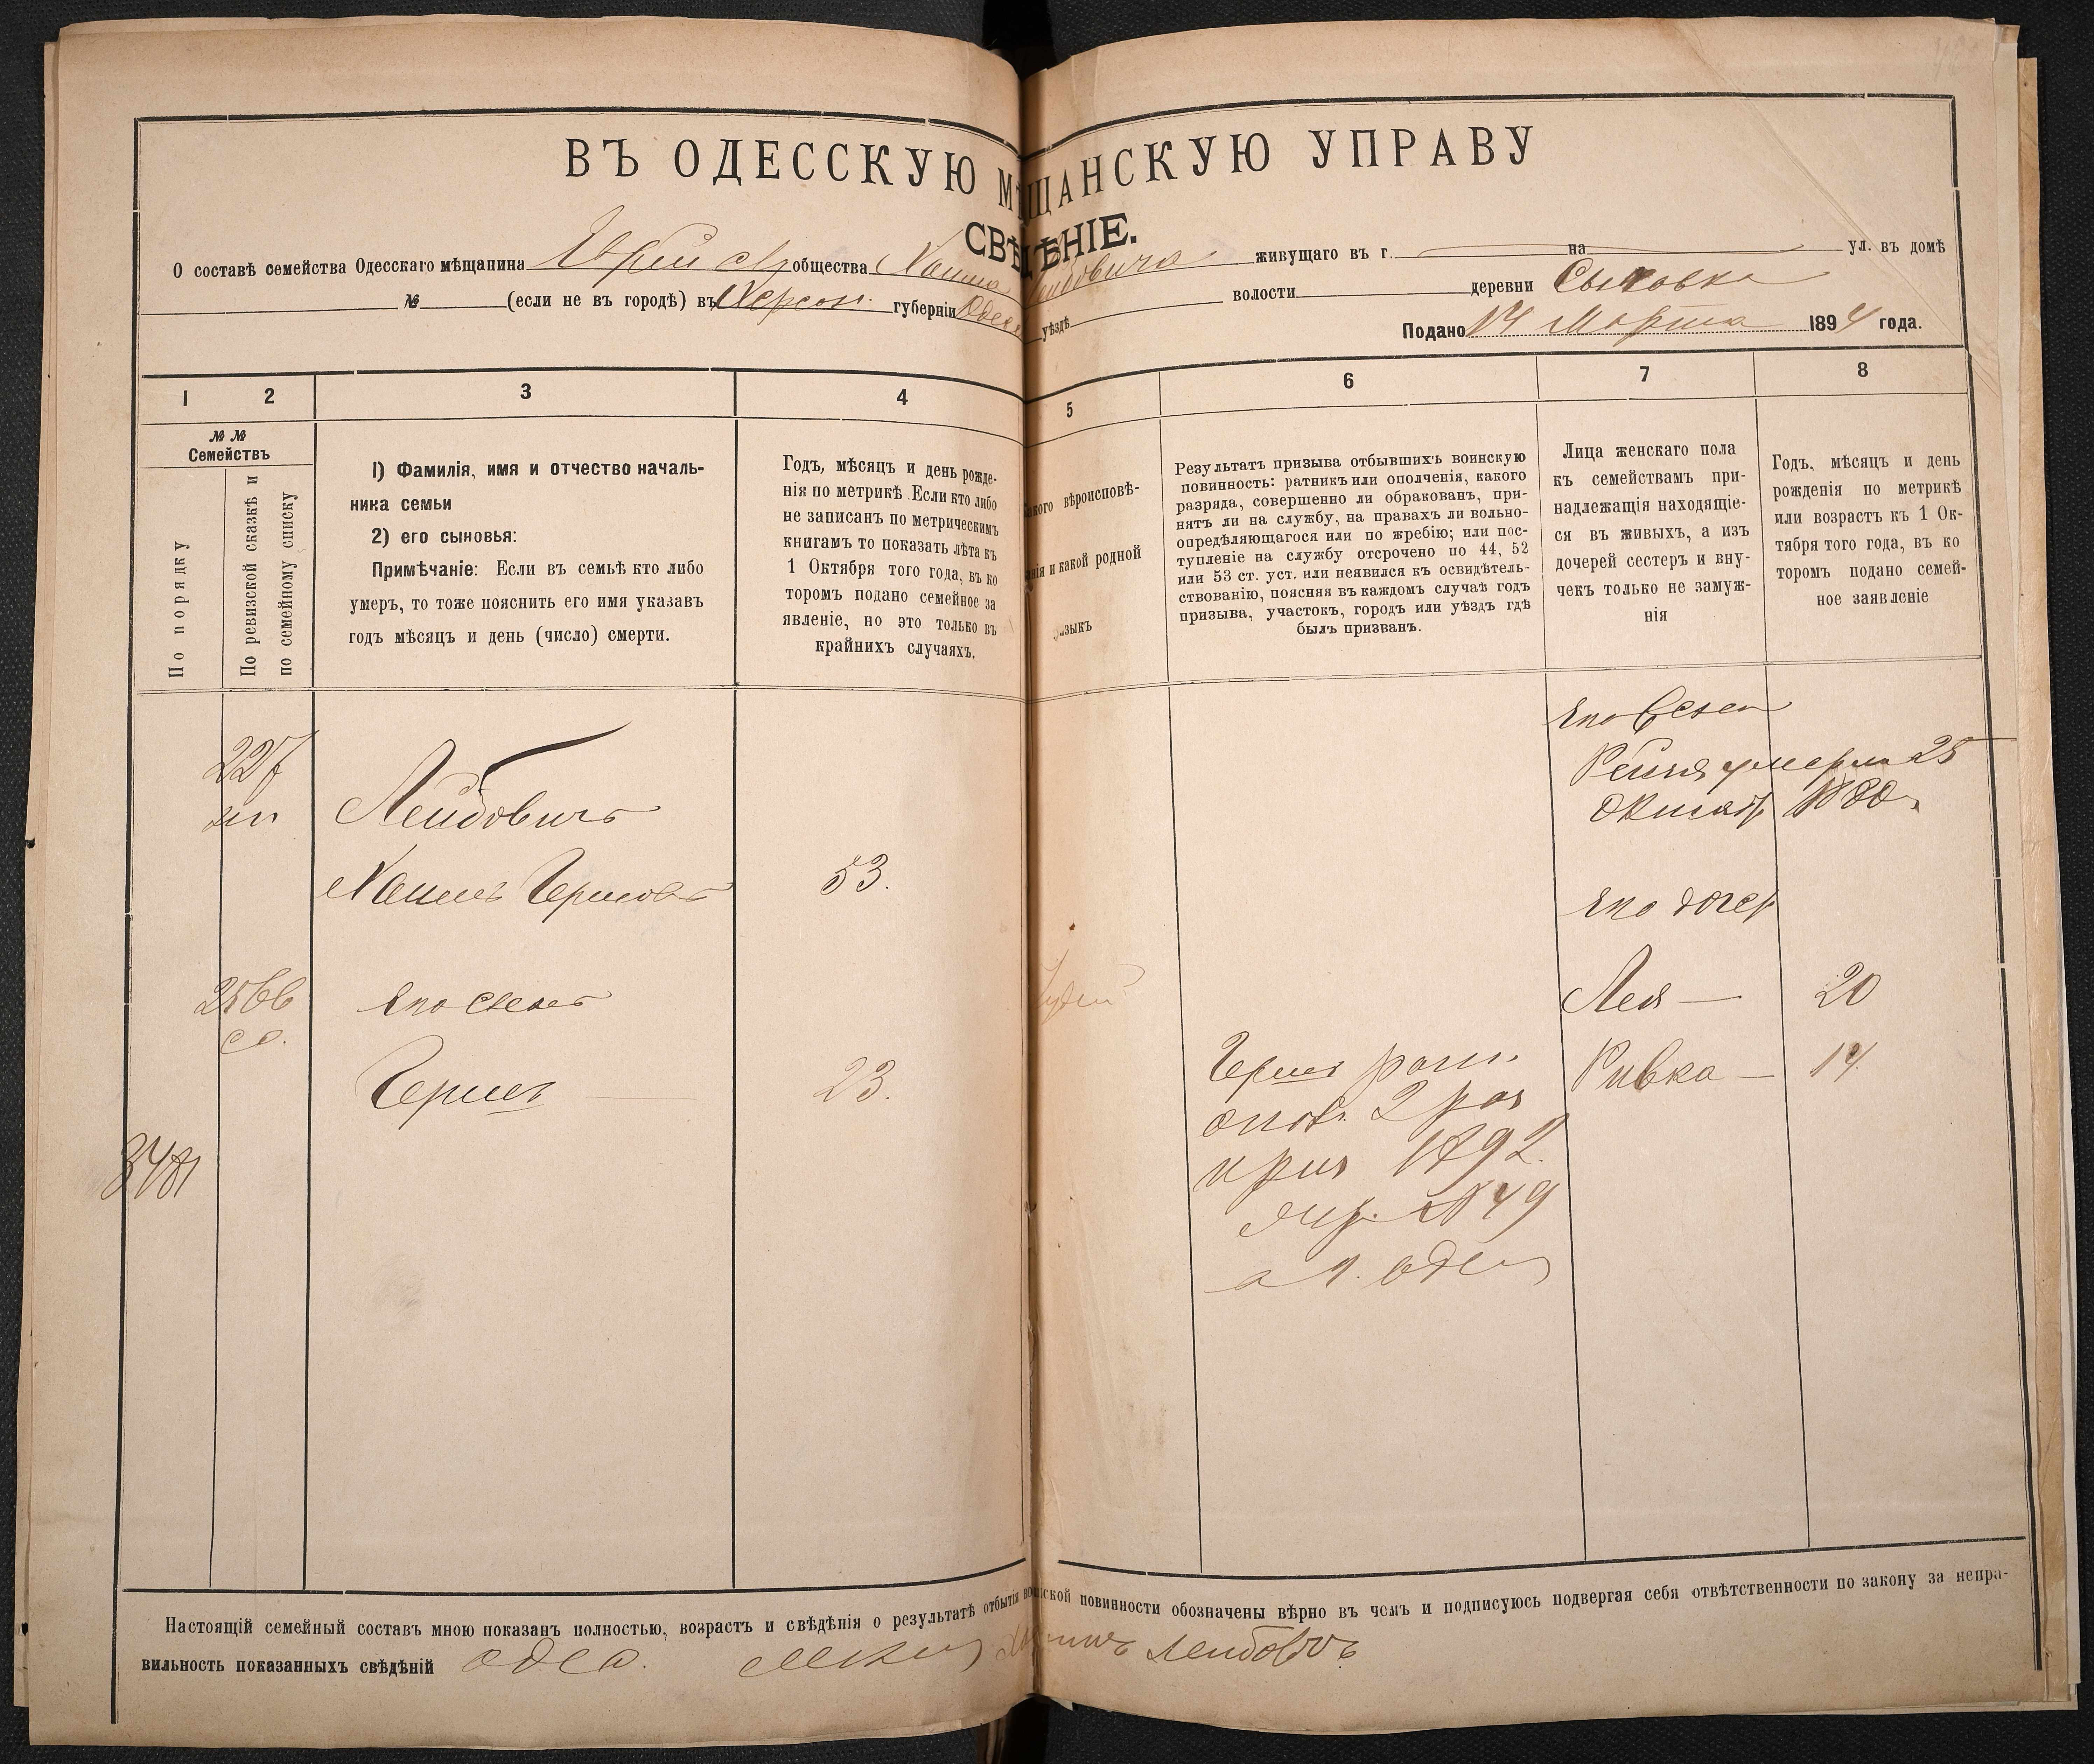 ВЪ ОДЕССКУЮ МѢЩАНСКУЮ УПРАВУ
СВѢДѢНІЕ.
О составѣ семейства Одесскаго мѣщанина общества Хаима Лейбовича живущаго въ г. на ул. въ домѣ
№ (если не въ городѣ) въ Херсон. губерніи Одесс уѣздѣ волости деревни
Подано 14 Марта 1894 года.
1 2 3 4 5 6 7 8
№ №
Семействъ
По порядку
По ревизской сказкѣ и
по семейному списку
1) Фамилія, имя и отчество началь-
ника семьи
2) его сыновья:
Примѣчаніе: Если въ семьѣ кто либо
умеръ, то тоже пояснить его имя указавъ
годъ мѣсяцъ и день (число) смерти.
Годъ, мѣсяцъ и день рожде-
нія по метрикѣ. Если кто либо
не записанъ по метрическимъ
книгамъ то показать лѣта къ
1 Октября того года, въ ко
торомъ подано семейное за
явленіе, но это только въ
крайнихъ случаяхъ.
Какого вѣроисповѣ-
данія и какой родной
языкъ
Результатъ призыва отбывшихъ воинскую
повинность: ратникъ или ополченія, какого
разряда, совершенно ли обракованъ, при-
нятъ ли на службу, на правахъ ли вольно-
опредѣляющагося или по жребію; или пос-
тупленіе на службу отсрочено по 44, 52
или 53 ст. уст. или неявился къ освидѣтель-
ствованію, поясняя въ каждомъ случаѣ годъ
призыва, участокъ, городъ или уѣздъ гдѣ
былъ призванъ.
Лица женскаго пола
къ семействамъ при-
надлежащія находящіе-
ся въ живыхъ, а изъ
дочерей сестеръ и вну-
чекъ только не замуж-
нія
Годъ, мѣсяцъ и день
рожденія по метрикѣ
или возрастъ къ 1 Ок-
тября того года, въ ко
торомъ подано семей-
ное заявленіе
227
Лейбовичъ
Хаимъ Гершовъ 53.
2566
его сынъ
Гершъ 23.
3481
Іудей
Гершъ ратн.
опол. 2 раз
приз 1892.
жер. № 49
1. Одес
его жена
Рейзя умерла 25
Октяб 1880
его дочер
Лея — 20
Ривка — 14.
Настоящій семейный составъ мною показанъ полностью, возрастъ и свѣдѣнія о результатѣ отбытія воинской повинности обозначены вѣрно въ чемъ и подписуюсь подвергая себя отвѣтственности по закону за непра-
вильность показанныхъ свѣдѣній Хаимъ Лейбовичъ